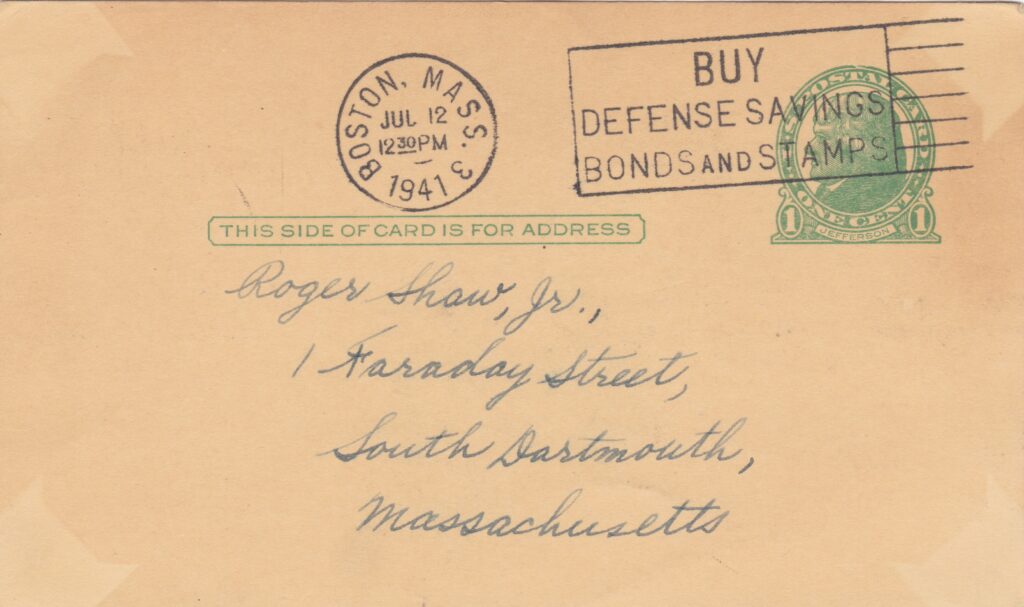 BOSTON, MASS. 3
JUL 12
12 30 PM
1941
BUY
DEFENSE SAVINGS
BONDS AND STAMPS
U.S. POSTAL CARD
1 ONE CENT 1
JEFFERSON
THIS SIDE OF CARD IS FOR ADDRESS
Roger Shaw, Jr.,
1 Faraday Street,
South Dartmouth,
Massachusetts